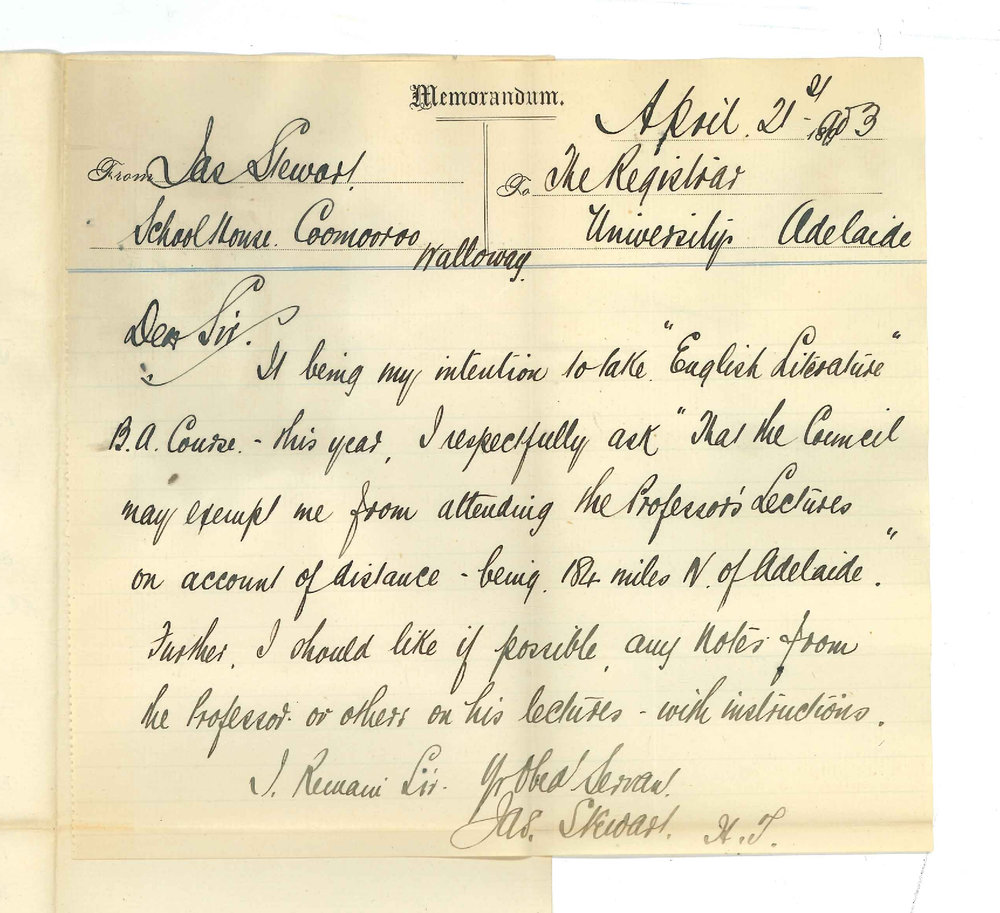 Memorandum.
April. 21st 1903
From Jas Stewart
To The Registrar
School House. Coomooroo
Walloway.
University Adelaide
Dear Sir.
It being my intention to take "English Literature"
B.A. Course. - this year, I respectfully ask "That the Council
may exempt me from attending the Professor's Lectures
on account of distance - being 184 miles N. of Adelaide".
Further, I should like if possible, any Notes from
the Professor or others on his lectures - with instructions.
I Remain Sir. Yr Obed Servant.
Jas. Stewart. H.T.